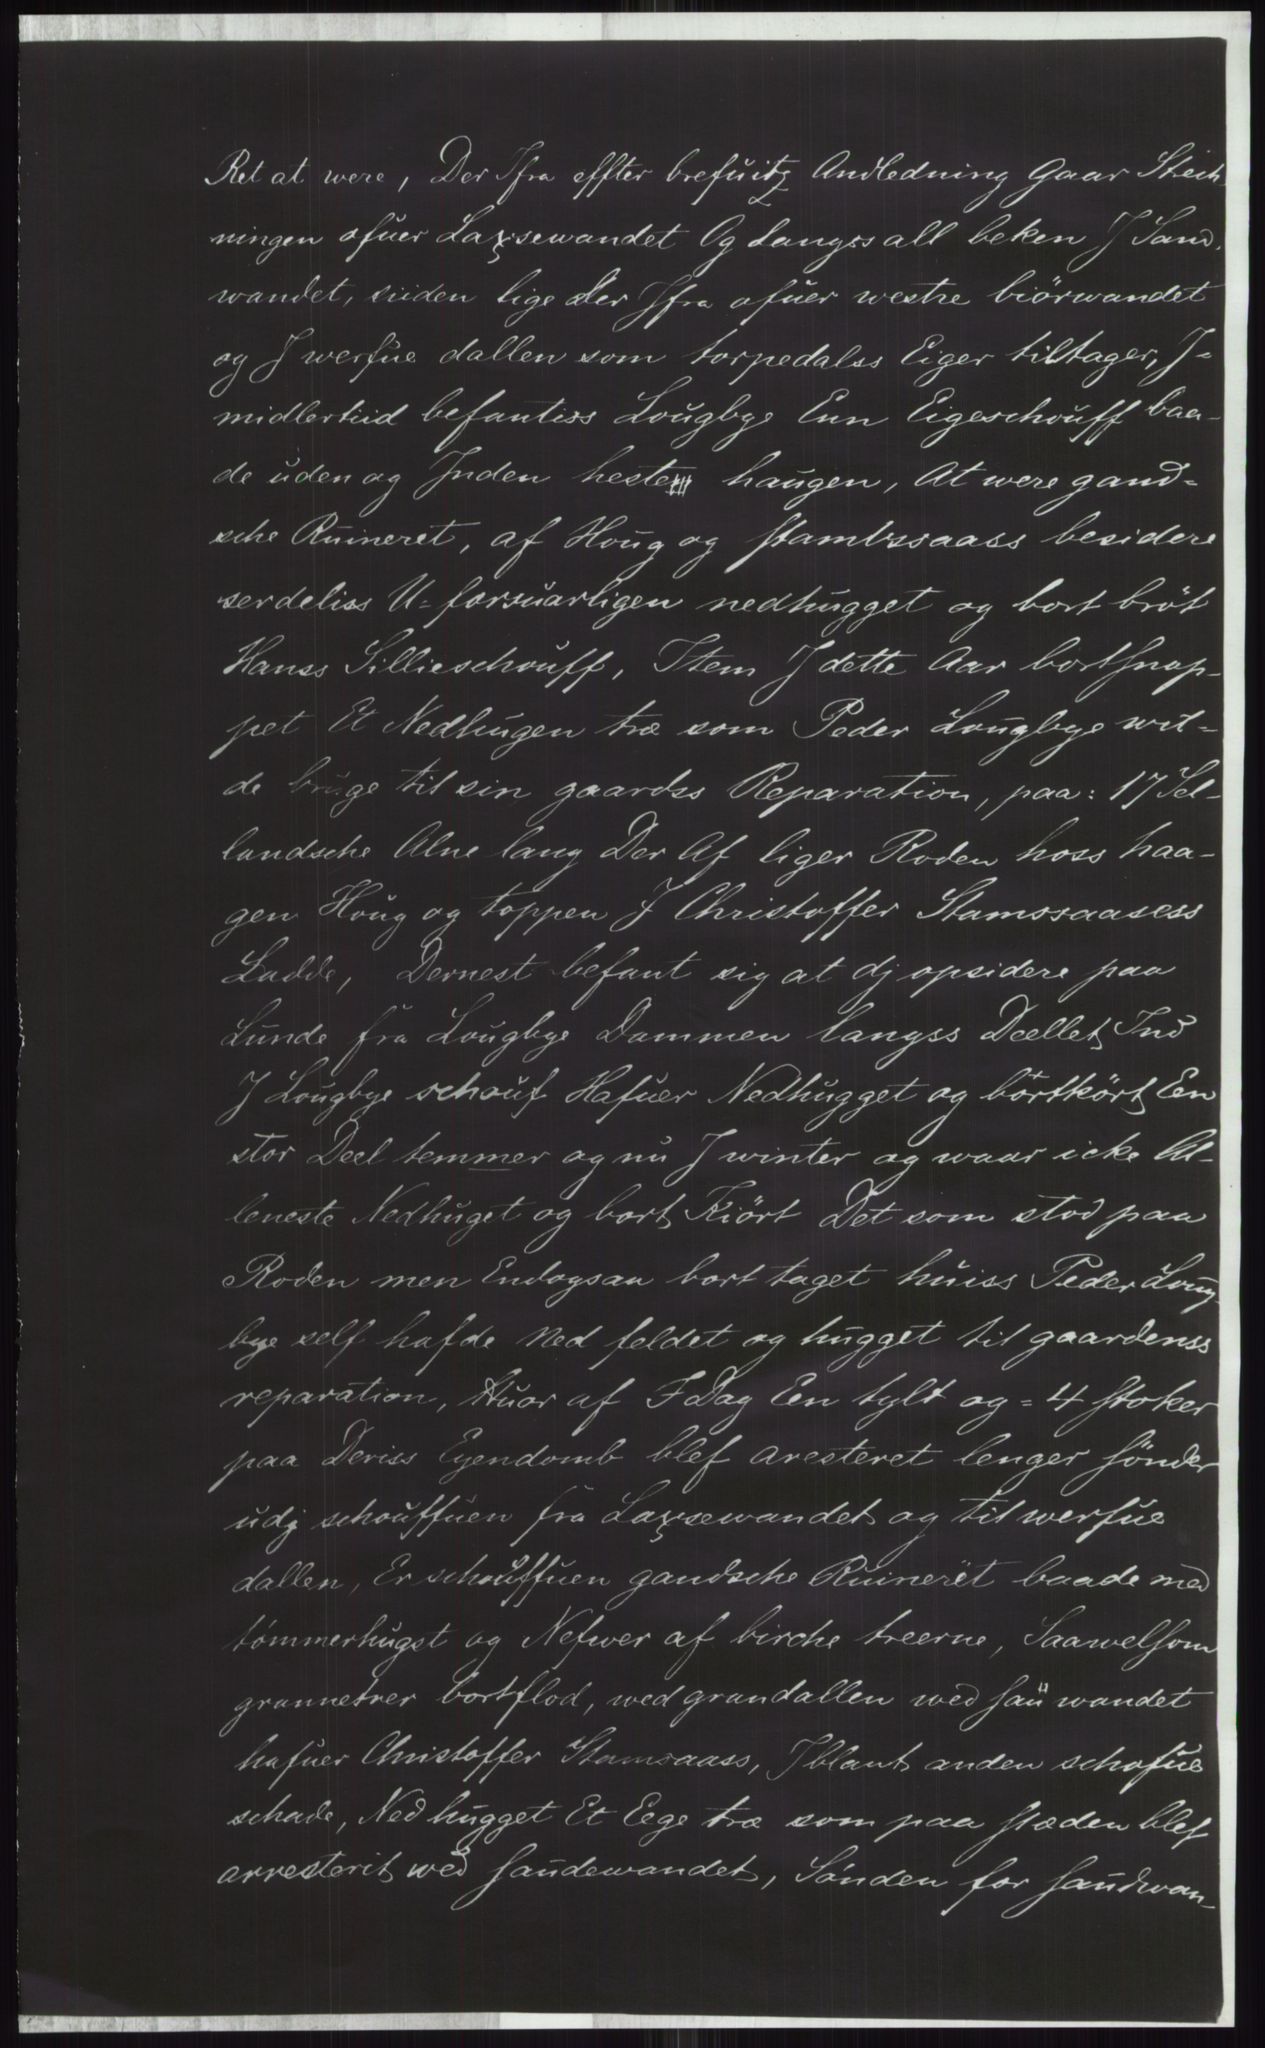 Ret at were, Der Ifra effter brefuitz Andledning Gaar Strech-
ningen ofuer Laxsewandet Og Langss all beken J Sand-
wandet, siiden lige der Jfra ofuer westre biörwandet
og J werfue dallen som torpedalss Eiger tiltager, J-
midlertiid befantiss Lougbye Enn Eigeschouff baa-
de uden og Jnden heste haugen, At were gand-
sche Ruineret, af Houg og Stambssaass besidere
serdeliss U-forsuarligen nedhugget og bort bröt
Hanss Sillieschouff, Item J dette Aar bortsnap-
pet Et Nedhugen træ som Peder Lougbye wil-
de bruge til sin gaardss Reparation, paa: 17 Sel-
landsche Alne lang Der Af liger Roden hoss haa-
gen Houg og toppen J Christoffer Stamssaasess
Ladde, Dernest befant sig at dj opsidere paa
Lunde fra Lougbye Dammen langss Deellet Ind
J Lougbye schouf Hafuer Nedhugget og bortkört En
stor Deel temmer og nu J winter og waar icke Al-
leneste Nedhuget og bort Kiört Det som stod paa
Roden men Endogsaa bort taget huiss Peder Loug-
bye self hafde Ned feldet og hugget til gaardenss
reparation, Huor af J Dag En tylt og = 4 stoker
paa Deriss Eyendomb blef aresteret lenger sönder
udj schouffuen fra Laxsewandet og til werfue
dallen, Er schouffuen gandsche Ruineret baade med
tömmerhugst og Nefwer af birche treerne, Saawelsom
grannetrer bortflod, wed grandallen wed sau wandet
hafuer Christoffer Stamsaass, Jblant anden schofue
schade, Ned hugget Et Eege træ som paa stæden blef
arresterit wed saudewandet, Sönden for saudwan-